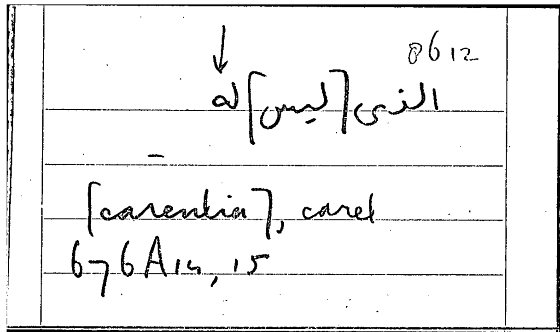 8612
↓
الذى [ليس] له
[carentia], caret
676A14, 15